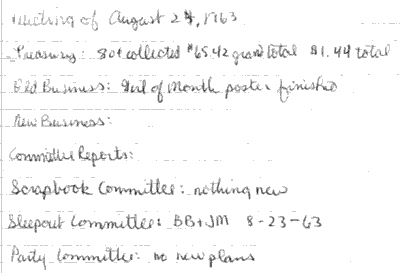 Meeting of August 24, 1963
Treasury: 80¢ collected $65.42 grand total $1.44 total
Old Business: Girl of Month poster finished
New Business:
Committee Reports:
Scrapbook Committee: nothing new
Sleepout Committee: BB+JM 8-23-63
Party Committee: no new plans